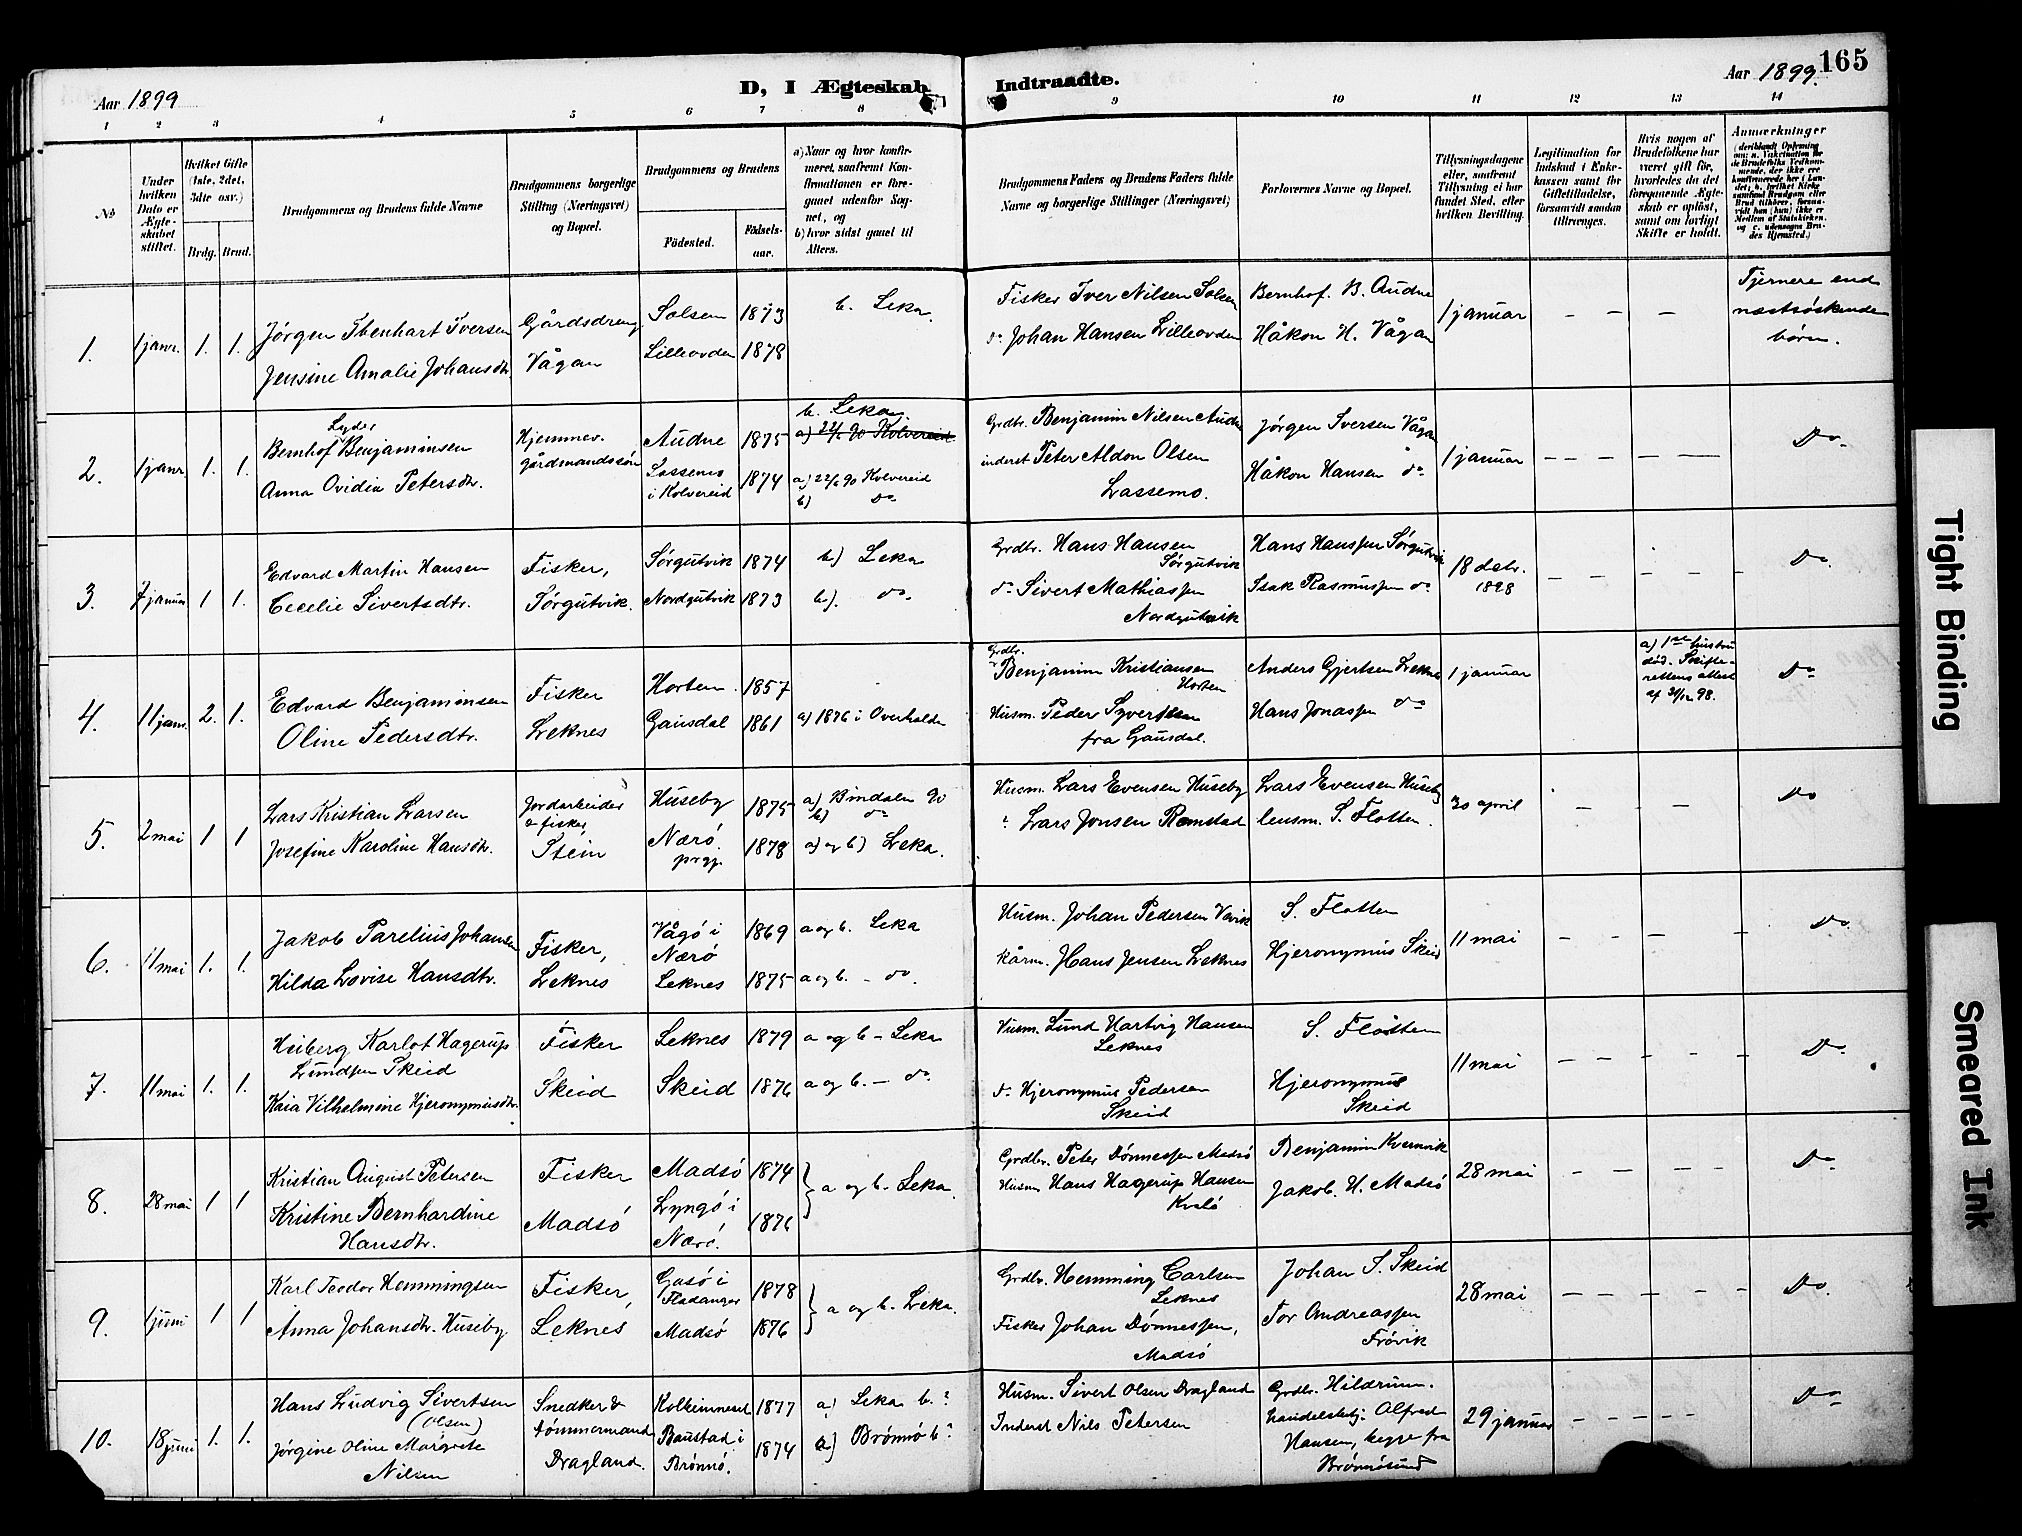 Aar 1899
D, I Ægteskab Indtraadte.
Aar 1899.
165
1 2 3 4 5 6 7 8 9 10 11 12 13 14
No
Under hvilken Dato er Ægteskabet stiftet.
Hvilket Gifte (1ste, 2det, 3die osv.)
Brdg. Brud.
Brudgommens og Brudens fulde Navne
Brudgommens borgerlige Stilling (Næringsvei) og Bopæl.
Brudgommens og Brudens
Födested.
Födselsaar.
a) Naar og hvor konfirmeret, saafremt Konfirmationen er foregaaet udenfor Sognet, og
b) hvor sidst gaaet til Alters.
Brudgommens Faders og Brudens Faders fulde Navne og borgerlige Stillinger (Næringsvei)
Forlovernes Navne og Bopæl.
Tillysningsdagene eller, saafremt Tillysning ei har fundet Sted, efter hvilken Bevilling.
Legitimation for Indskud i Enkekassen samt for Giftetilladelse, forsaavidt saadan tiltrænges.
Hvis nogen af Brudefolkene har været gift för, hvorledes da det foregaaende Ægteskab er oplöst, samt om lovligt Skifte er holdt.
Anmærkninger
1. 1 janr. 1. 1.
Jørgen Ibenhart Iversen
Jensine Amalie Johansdtr.
Gårdsdreng
Vågan
Solsem 1873
Lilleovden 1878
b. Leka.
Fisker Iver Nilsen Solsem
do Johan Hansen Lilleovden
Bernhof. B. Audne
Håkon H. Vågan
1 januar
– – –
Fjernere end
næstsøskende
børn.
2. 1 janr. 1. 1.
Lyder
Bernhof Benjaminsen
Anna Ovidia Petersdtr.
Hjemmev.
gårdmandssøn
Audne 1875
Lassemo
i Kolvereid 1874
b. Leka.
a) 22/6 90 Kolvereid
a) 22/6 90 Kolvereid
b) do
Grdbr. Benjamin Nilsen Audne
inderst Peter Aldon Olsen
Lassemo.
Jørgen Iversen Vågan
Håkon Hansen do
1 januar
– – – –
Do.
3. 7 januar 1 1.
Edvard Martin Hansen
Cecelie Sivertsdtr.
Fisker,
Sørgutvik.
Sørgutvik 1874
Nordgutvik 1873
b) Leka
b). do.
Grdbr. Hans Hansen
Sørgutvik
do Sivert Mathiassen
Nordgutvik
Hans Hanssen Sørgutvik
Isak Rasmussen do
18 debr.
1898
– – – –
Do.
4. 11 janr. 2. 1.
Edvard Benjaminsen
Oline Pedersdtr.
Fisker
Leknes
Horten 1857
Gausdal 1861
a) 1876 i Overhalden
Grdbr.
Benjamin Kristiansen
Horten
Husm. Peder Syvertsen
fra Gausdal.
Anders Gjertsen Leknes
Hans Jonassen do
1 januar
a) 1ste hustru
død. Skifte-
rettens attest
af 31/12 98.
Do
5. 2 mai 1 1
Lars Kristian Larsen
Josefine Karoline Hansdtr.
Jordarbeider
& fisker
Stein
Huseby 1875
Nærö. prgj. 1878
a) Bindalen 90
b) do
a) og b) Leka.
Husm. Lars Evensen Huseby
Lars Jonsen Ramstad
Lars Evensen Huseby
lensm. S. Flotten.
30 april
– – –
Do
6. 11 mai 1. 1.
Jakob Parelius Johansen
Hilda Lovise Hansdtr.
Fisker,
Leknes
Vågö i
Nærö 1869
Leknes 1875
a og b. Leka
a og b. – do.
Husm. Johan Pedersen Varik
kårm. Hans Jensen Leknes
S. Flotten
Hjeronymus Skeid
11 mai
– – – –
Do.
7. 11 mai 1. 1.
Heiberg Karlot Hagerup
Lundsen Skeid
Kaia Vilhelmine Hjeronymusdtr.
Fisker
Skeid
Leknes 1879
Skeid 1876
a og b – Leka
a og b. – do.
Husm. Lund Hartvig Hansen
Leknes
do Hjeronymus Pedersen
Skeid
S. Flotten
Hjeronymus
Skeid
11 mai
– – – –
Do
8. 28 mai 1 1
Kristian August Petersen
Kristine Bernhardine
Hansdtr.
Fisker
Madsö
Madsö 1874
Lyngö i
Nærö. 1876
a og b. Leka.
Grdbr. Peter Dønnessen Madsö
Husm Hans Hagerup Hansen
Kvalö
Benjamin Kvernvik
Jakob. H. Madsö
28 mai
– – – –
Do
9. 1 juni 1 1
Karl Teodor Hemmingsen
Anna Johansdtr. Huseby
Fisker,
Leknes
Gasö i
Fladanger 1878
Madsö 1876
a og b. Leka.
Grdbr. Hemming Carlsen
Leknes
Fisker Johan Dønnessen,
Madsö
Johan J. Skeid
Tor Andreassen
Frövik
28 mai
– – – –
Do.
10. 18 juni 1. 1.
Hans Ludvig Sivertsen
(Olsen)
Jörgine Oline Margrete
Nilsen
Snedker &
tømmermand
Dragland.
Kolkimmereit 1877
Baustad i
Brönnö. 1874
a) Leka b. ?
a) Brönnö b ?
Husm. Sivert Olsen Dragland
Inderst Nils Petersen
Grdbr. Hildrum.
handelsbetj. Alfred
Hansen, begge fra
Brönnösund
29 januar
– – – –
Do
Tight Binding
Smeared Ink